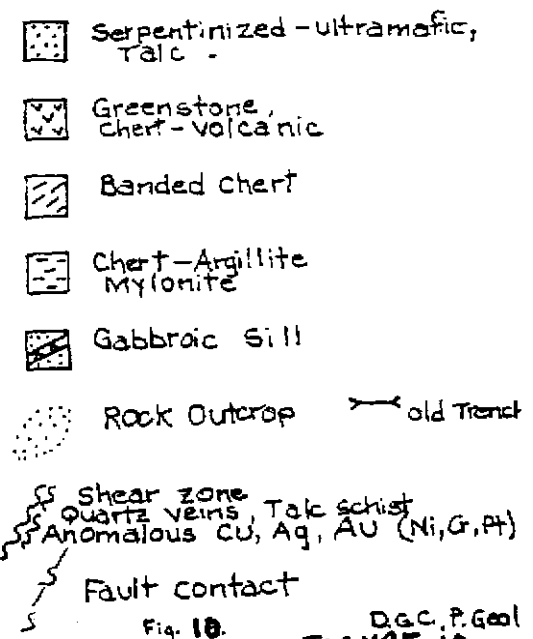 Serpentinized-ultramafic,
Talc -
Greenstone,
Chert-volcanic
Banded Chert
Chert-Argillite
Mylonite
Gabbroic Sill
Rock Outcrop
old Trench
Shear zone
Quartz veins, Talc schist
Anomalous Cu, Ag, Au (Ni, Cr, Pt)
Fault contact
Fig. 10.
D.G.C., P. Geol